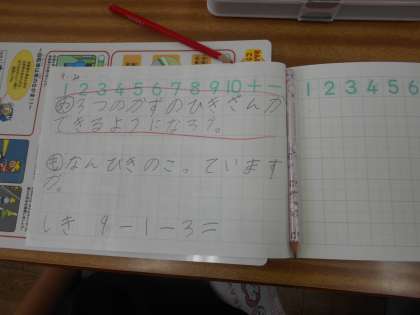 1 2 3 4 5 6 7 8 9 10 + −
1 2 3 4 5 6
め 3つのかずのひきざんが
できるようになろう。
も なんびきのこっています
か。
しき 9−1−3=